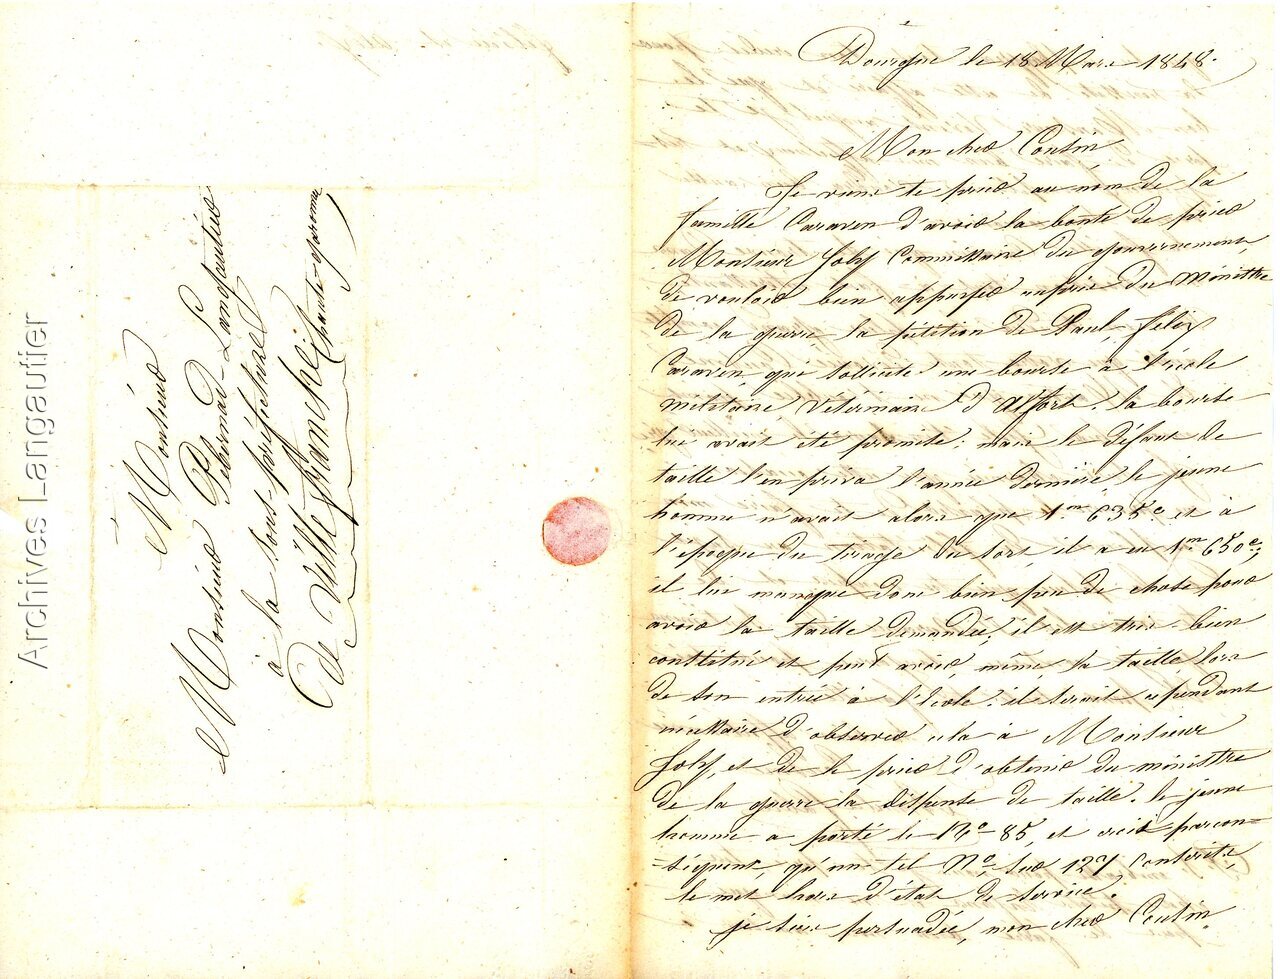 Archives Langautier
Monsieur
Monsieur Pebernad-Langautier
à la sous-préfecture
De Villefranche (haute-garonne
Dourgne le 18 Mars 1848.
Mon cher Cousin
Je viens te prier au nom de la
famille Caraven d'avoir la bonté de prier
Monsieur Joly Commissaire du gouvernement,
de vouloir bien appuyer auprès du Ministre
de la guerre la pétition de Paul, félix
Caraven, qui sollicite une bourse à l'école
militaire, Vétérinaire d'Alfort. la bourse
lui avait été promise: mais le défaut de
taille l'en priva l'année dernière le jeune
homme n'avait alors que 1.m 635.c et à
l'époque du tirage du sort, il a eu 1.m 650c;
il lui manque donc bien peu de chose pour
avoir la taille demandée, il est très-bien
constitué et peut avoir, même, la taille, lors
de son entrée à l'école: il serait cependant
nécessaire d'observer cela à Monsieur
Joly, et de le prier d'obtenir du ministre
de la guerre la dispense de taille. le jeune
homme a porté le No 85, et croit parcon-
-séquent, qu'un tel No. sur 127 conscrits,
le met hors d'état de service.
je suis persuadée, mon cher Cousin,